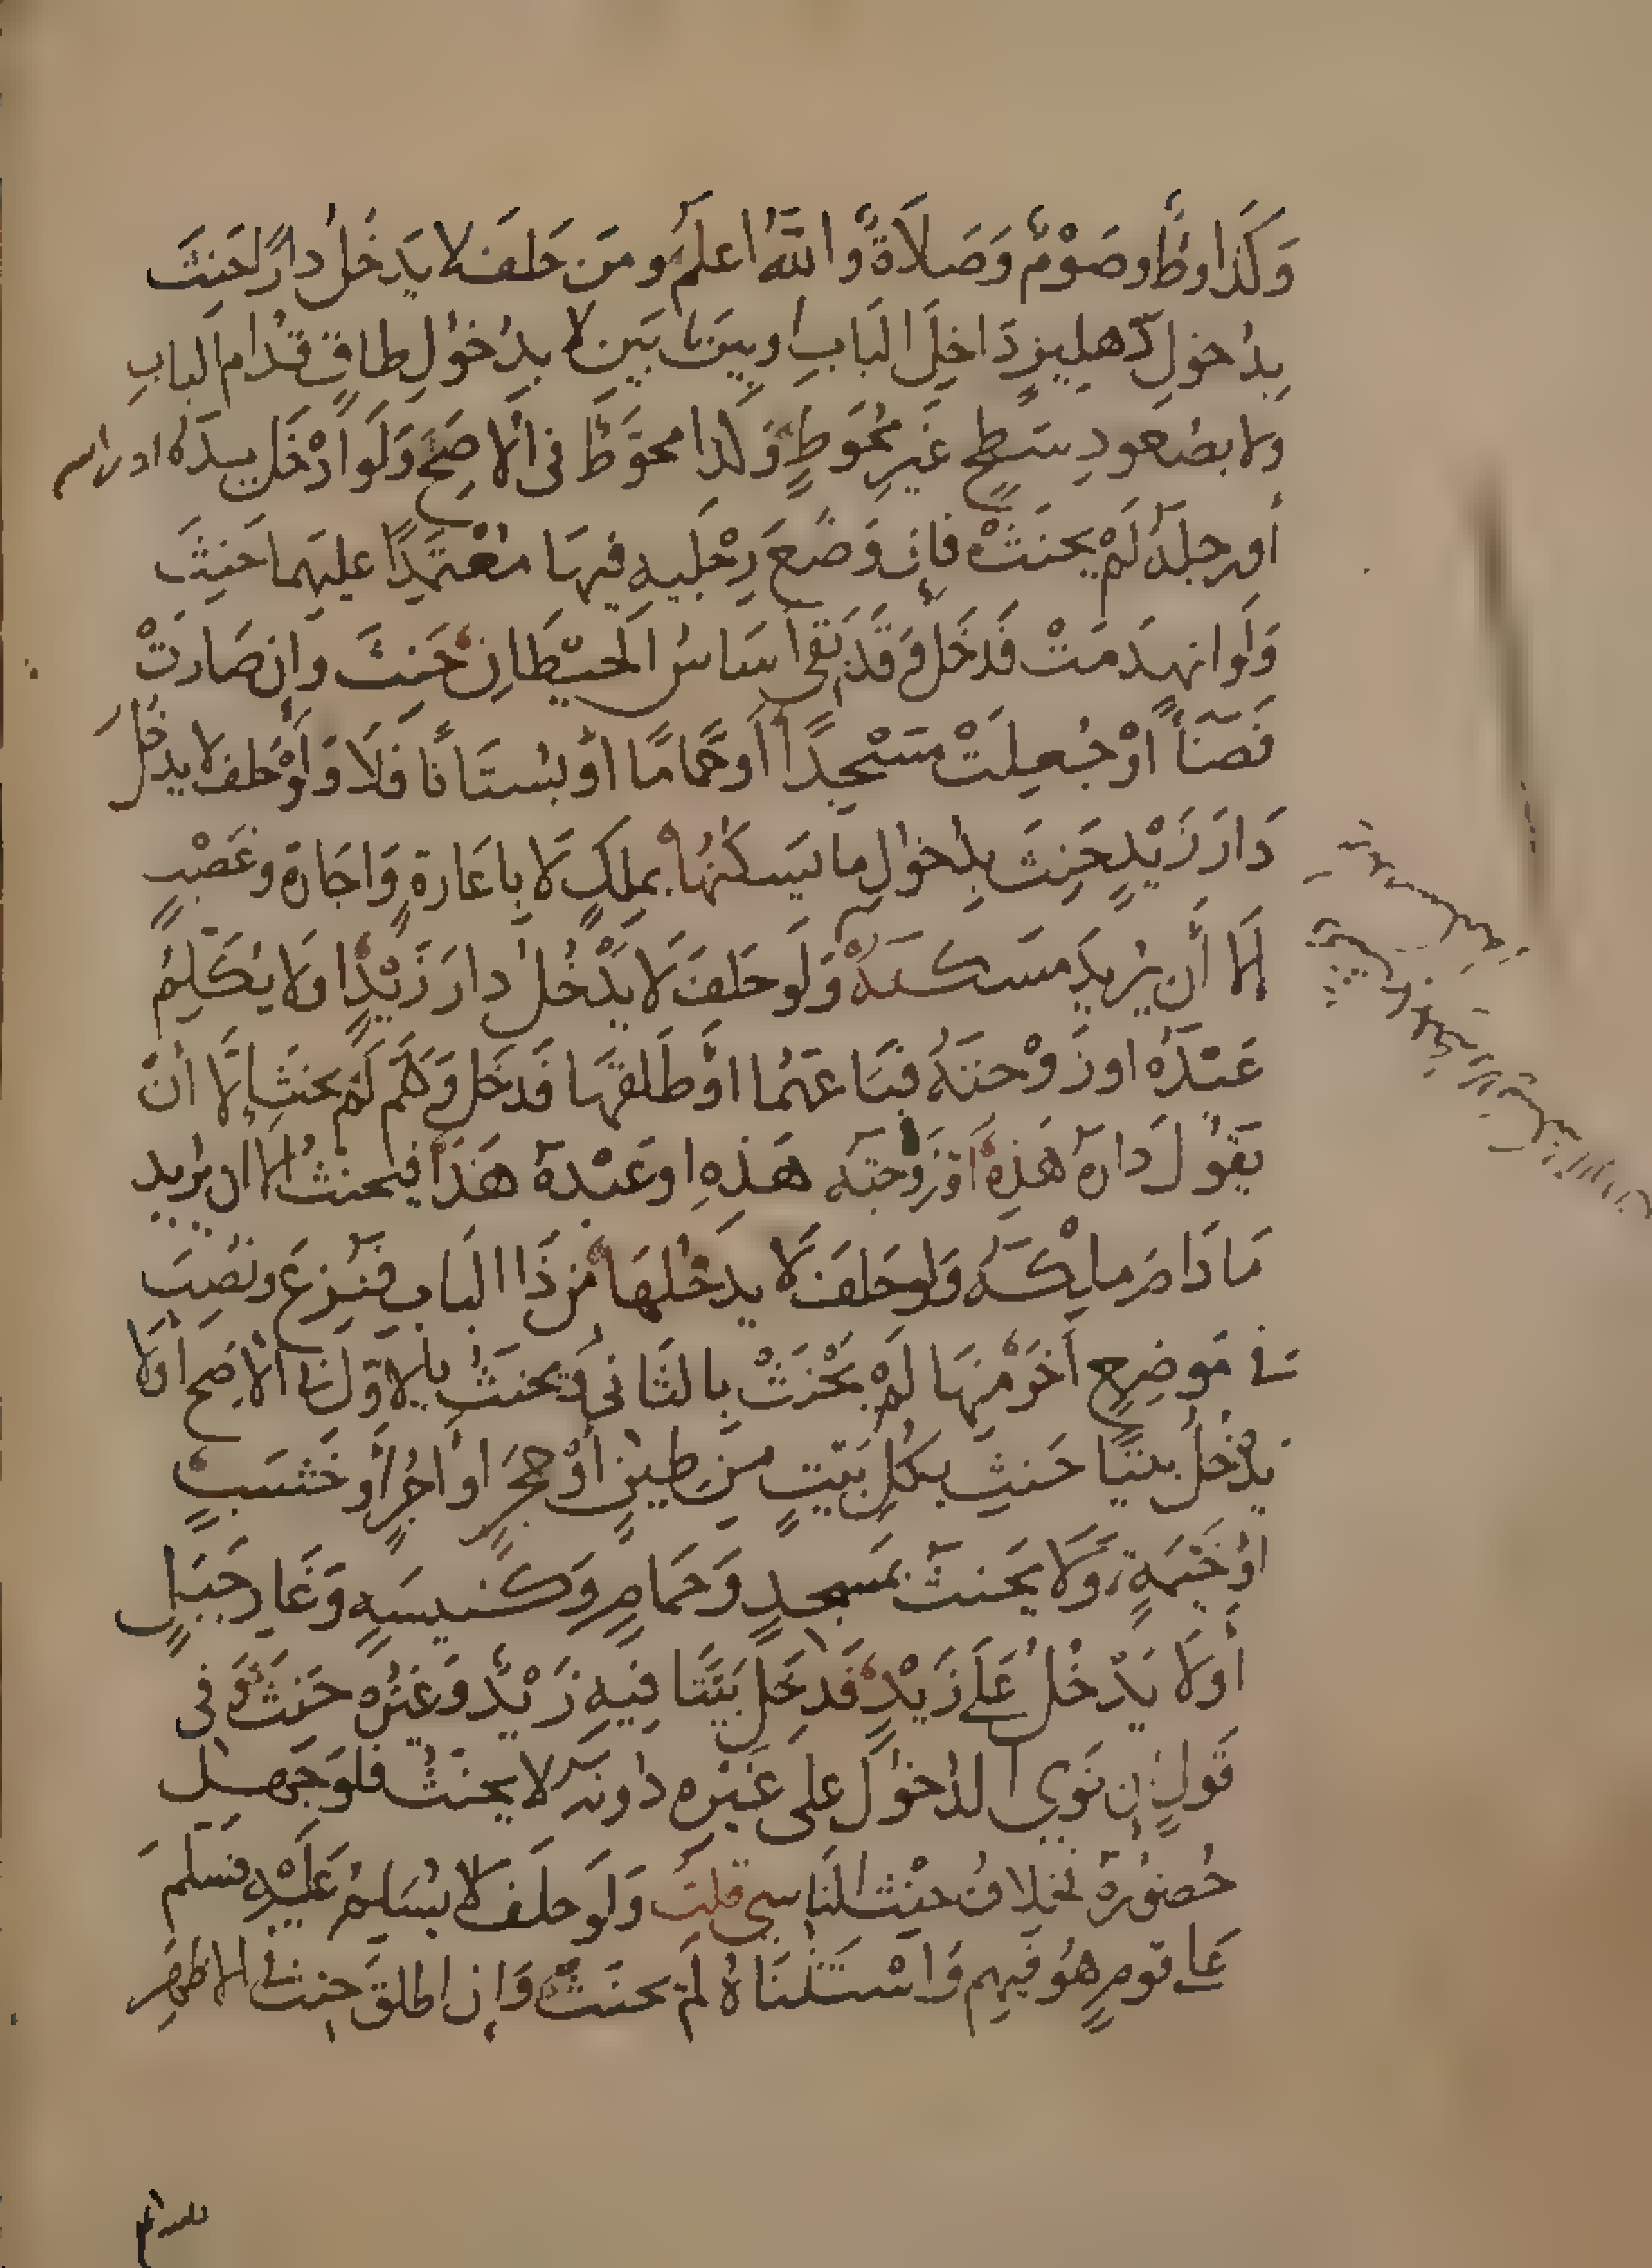 وَكَذا وطْءٌ وصَوْمٌ وَصَلَاةٌ وَاللهُ اعلم ومَن حَلفَ لا يَدخُلُ دارًا حَنِثَ
بِدُخولِ دِهليزٍ دَاخِلَ البَابِ او بينَ بابَين لا بِدُخولِ طاقٍ قدّامَ البابِ
ولا بصُعودِ سَطحٍ غَيرِ مُحَوطٍ وَكذا محوَّطٌ فى الأصَحِّ وَلَو أدْخَلَ يدَهُ او راسه
أو رجلهُ لَمْ يحنَثْ فإن وَضَعَ رِجْليهِ فيهَا مُعْتَمِدًا عليهما حَنِثَ
وَلَو انهدَمَتْ فَدَخَلَ وَقَد بَقى أسَاسُ الحيْطانِ حَنِثَ وَإن صَارتْ
فَضَاً أوْ جُعِلَتْ مَسْجِدًا أو حَمّامًا أوْ بُستَانًا فَلَا وَلَوْ حَلف لا يدخُلُ
دَارَ زَيْدٍ حَنِثَ بدُخولِ ما يَسكنُها بملِكٍ لا بِاعَارةٍ وَاجَارةٍ وغَصْبٍ
إلّا أن يُريدَ مَسكنهُ وَلَو حَلفَ لَا يَدْخُلُ دارَ زَيْدٍ أوْ لا يُكلِمُ
عَبْدَهُ او زَوْجَتَهُ فبَاعَهُما اوْ طَلقهَا فَدخَل وَكلّم لَمْ يحنَث إلّا أنْ
يَقُولَ دارَه هَذِهِ أوْ زَوجَتَه هَذِهِ او عَبْدَهُ هَذَا فيحنثُ الا ان يريد
مَا دَامَ مِلكهُ وَلو حَلفَ لَا يدخُلهَا مِن ذَا البَابِ فنُزِعَ ونُصِبَ
فى مَوضِعٍ آخَرَ مِنهَا لَمْ يَحْنَثْ بِالثَانى وَيحنَثُ بالاوّلِ فى الاصَحِ أوْ لَا
يَدْخُلُ بيتًا حَنِثَ بكُلِ بَيْتٍ مِنْ طينٍ أوْ حجَرٍ اوْ آجُرٍّ أو خَشَبٍ
اوْ خَيْمَةٍ وَلَا يَحنثُ بمَسجدٍ وَحَمامٍ وَكنيسَهٍ وَغَارِ جَبَلٍ
أو لا يَدْخُلُ عَلَى زَيْدٍ فَدخَلَ بَيْتًا فِيهِ زَيْدٌ وَغَيرُه حَنِثَ وَفى
قَولٍ إن نَوى الدخُولَ على غَيْرِهِ دُونَه لا يحنَثُ فلو جَهِل
حُضورَهُ فخِلافُ حِنْثِ النَاسِى قلتُ وَلَو حلفَ لَا يسَلِمُ عَليْهِ فسَلّمَ
عَلى قومٍ هُو فيهِم وَاسْتَثْنَاهُ لَمْ يحنَثْ وَإن اطلقَ حنث فى الاظهَرِ